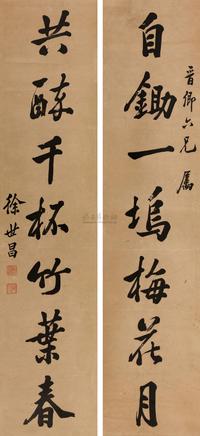 自鋤一塢梅花月
晉卿六兄屬
共醉千杯竹葉春
徐世昌